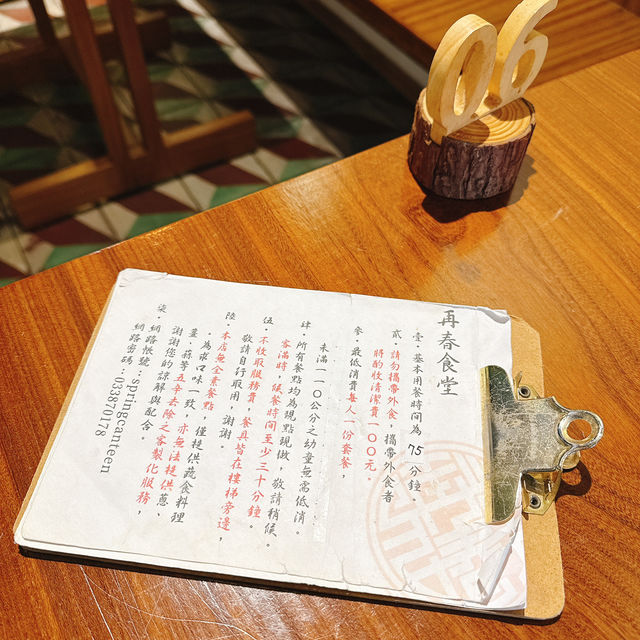 06
再春食堂
壹．基本用餐時間為75分鐘。
貳．請勿攜帶外食，攜帶外食者
將酌收清潔費一〇〇元。
參．最低消費每人一份套餐，
未滿一一〇公分之幼童無需低消。
肆．所有餐點均為現點現做，敬請稍候。
客滿時，候餐時間至少三十分鐘。
伍．不收取服務費，餐具皆在樓梯旁邊，
敬請自行取用，謝謝。
陸．本店無全素餐點
．為求口味一致，僅提供蔬食料理
薑、蒜等五辛去除之客製化服務，亦無法提供蔥、
謝謝您的諒解與配合。
柒．網路帳號：springcanteen
網路密碼：033870178